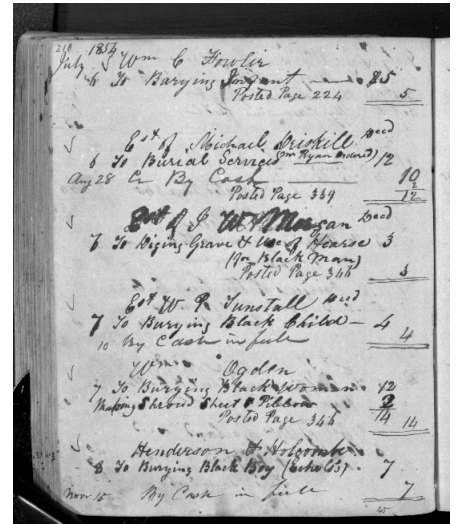 218 1854
July Wm C Fowler
6 To Burying Infant $5
Posted Page 224 5
Est of Michael Driskill Decd
6 To Burial Services (Wm Ryan Ordered) 12
Aug 28 Cr By Cash 10
2
Posted Page 339 12
Est of J W Morgan Decd
6 To Diging Grave & Use of Hearse 3
(for Black Man)
Posted Page 346 3
Est W P Tunstall Decd
7 To Burying Black Child 4
10 By Cash in full 4
Wm Ogden
7 To Burying Black Woman 12
Making Shroud Sheet & Ribbon 2
14
Posted Page 344 14
Henderson & Holcombe
8 To Burying Black Boy (Echols) 7
Nov 15 By Cash in full 7
45